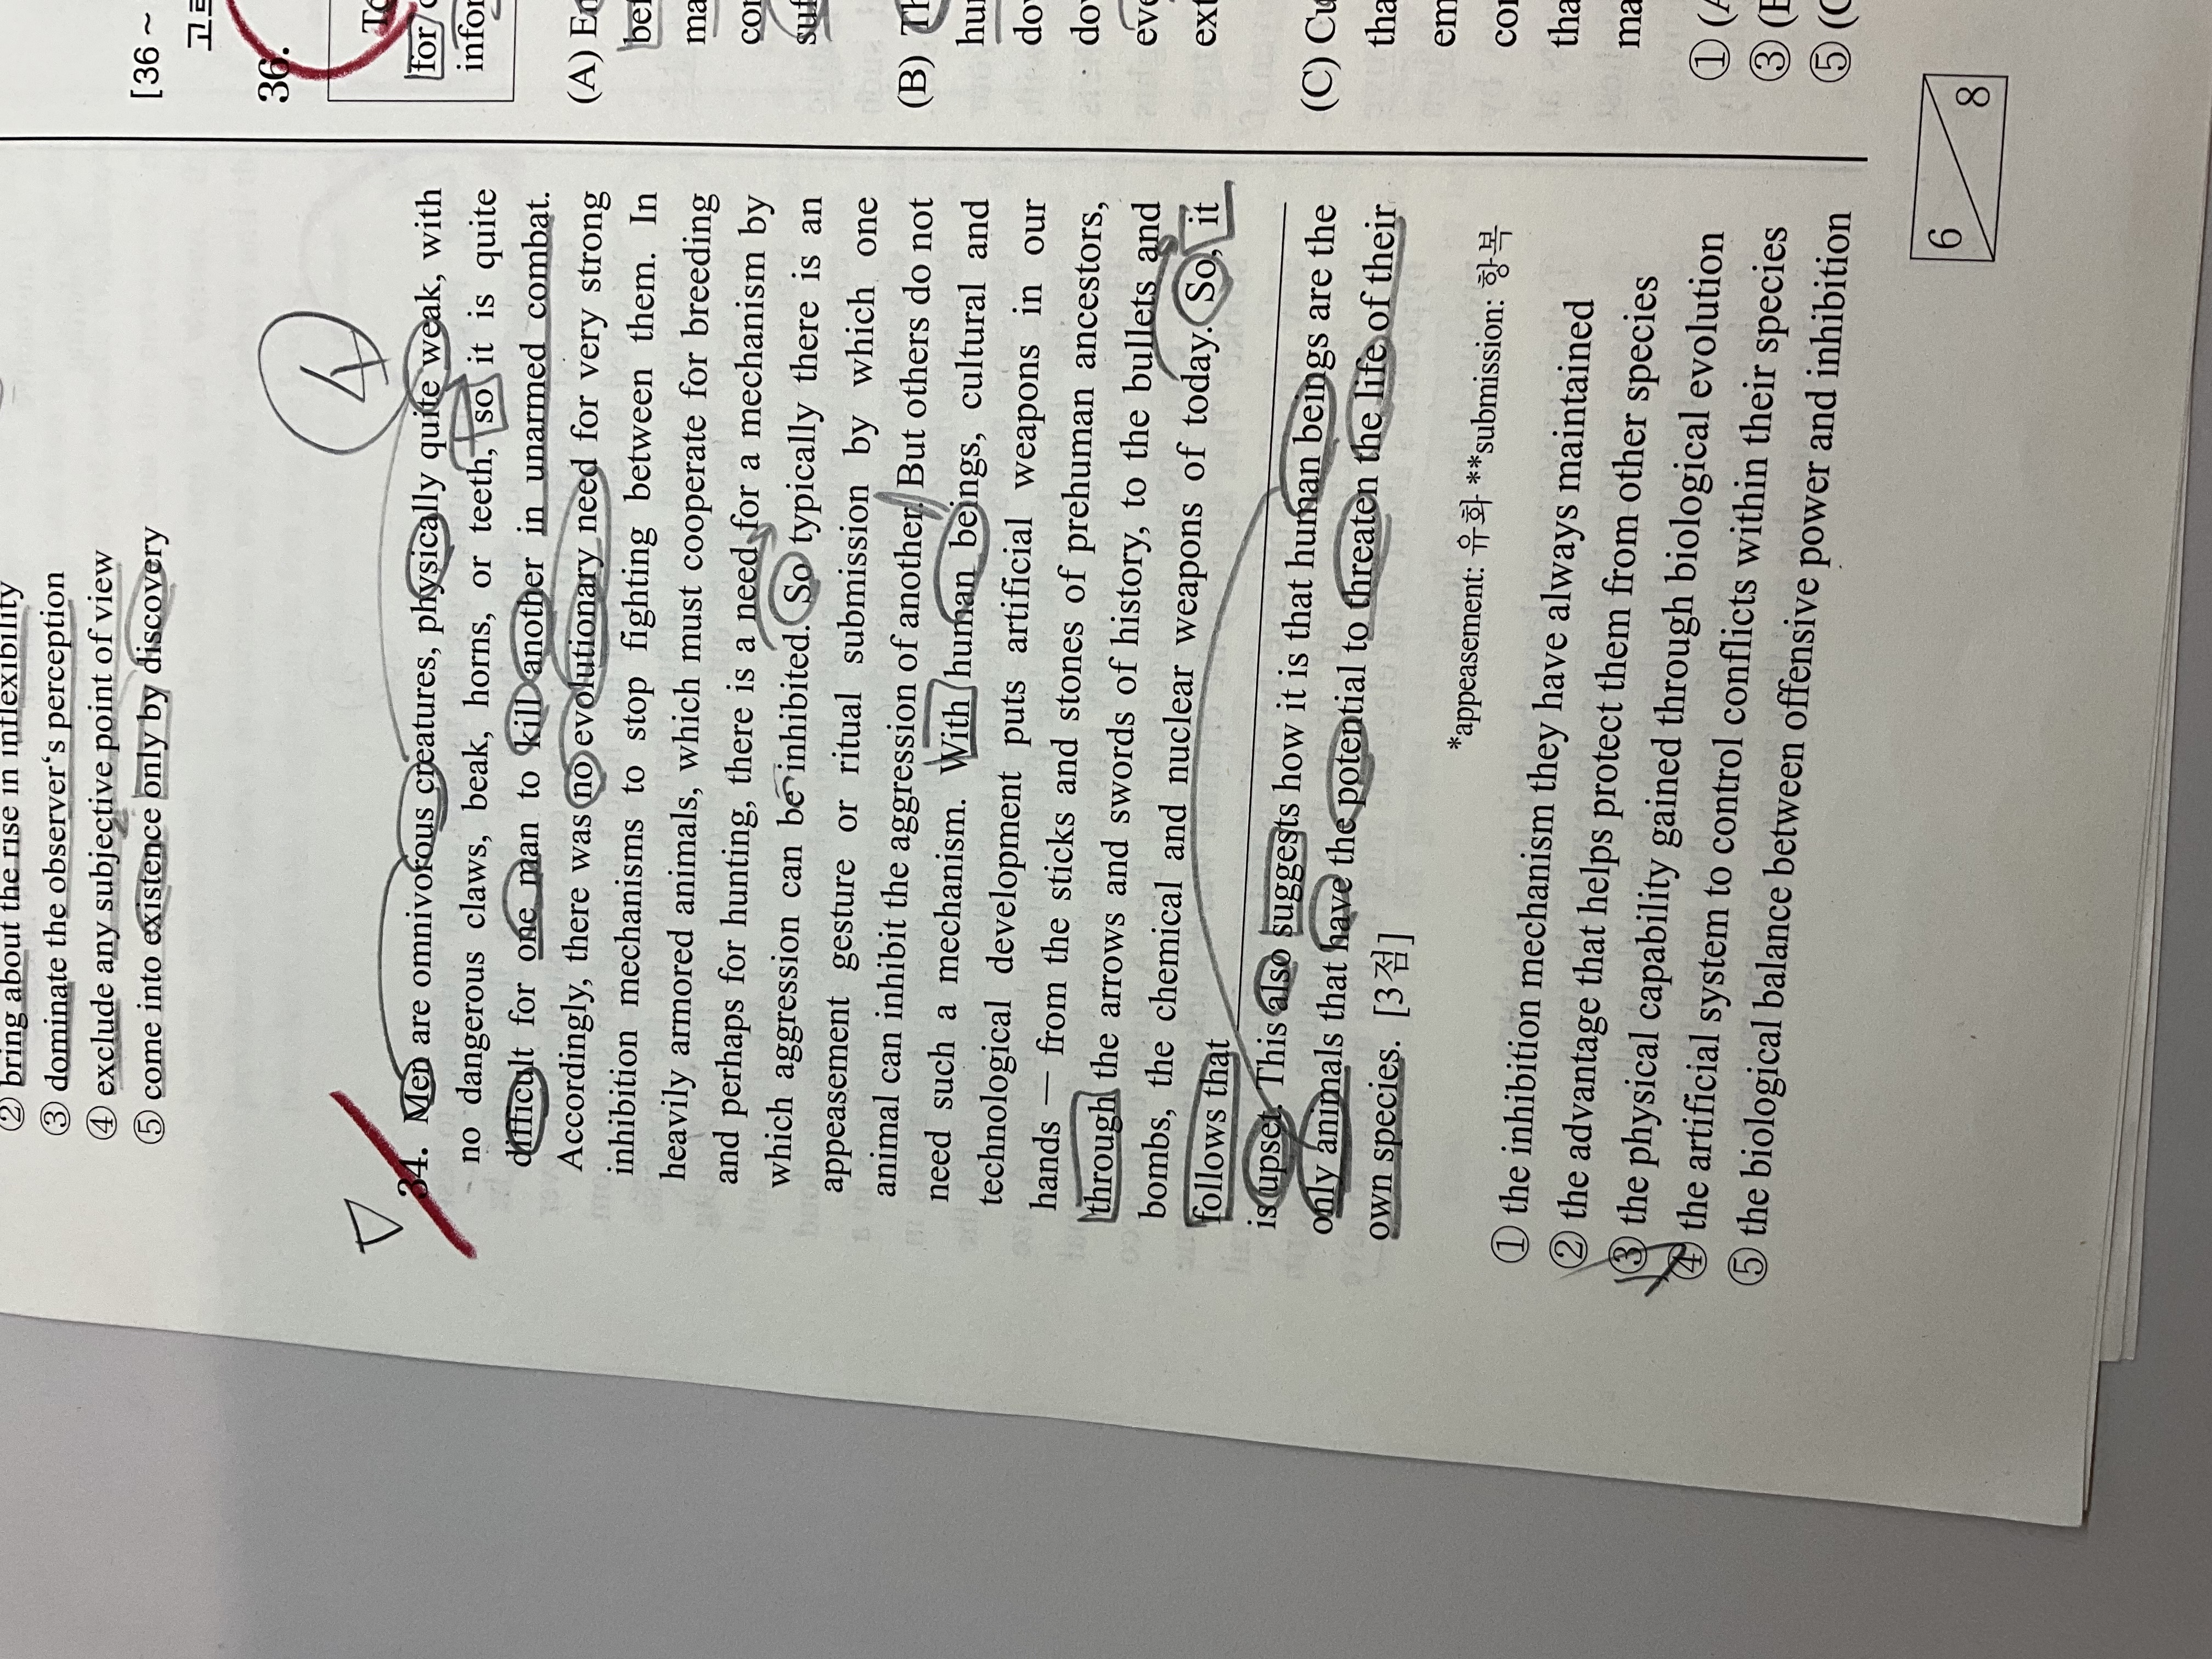 ② bring about the rise in inflexibility
③ dominate the observer's perception
④ exclude any subjective point of view
⑤ come into existence only by discovery
4
34. Men are omnivorous creatures, physically quite weak, with
no dangerous claws, beak, horns, or teeth, so it is quite
difficult for one man to kill another in unarmed combat.
Accordingly, there was no evolutionary need for very strong
inhibition mechanisms to stop fighting between them. In
heavily armored animals, which must cooperate for breeding
and perhaps for hunting, there is a need for a mechanism by
which aggression can be inhibited. So typically there is an
appeasement gesture or ritual submission by which one
animal can inhibit the aggression of another. But others do not
need such a mechanism. With human beings, cultural and
technological development puts artificial weapons in our
hands — from the sticks and stones of prehuman ancestors,
through the arrows and swords of history, to the bullets and
bombs, the chemical and nuclear weapons of today. So, it
follows that
is upset. This also suggests how it is that human beings are the
only animals that have the potential to threaten the life of their
own species. [3점]
*appeasement: 유화 **submission: 항복
① the inhibition mechanism they have always maintained
② the advantage that helps protect them from other species
③ the physical capability gained through biological evolution
④ the artificial system to control conflicts within their species
⑤ the biological balance between offensive power and inhibition
[36 ~
36.
for
(A)
(B)
(C)
tha
em
con
tha
ma
①
③
⑤
6 8